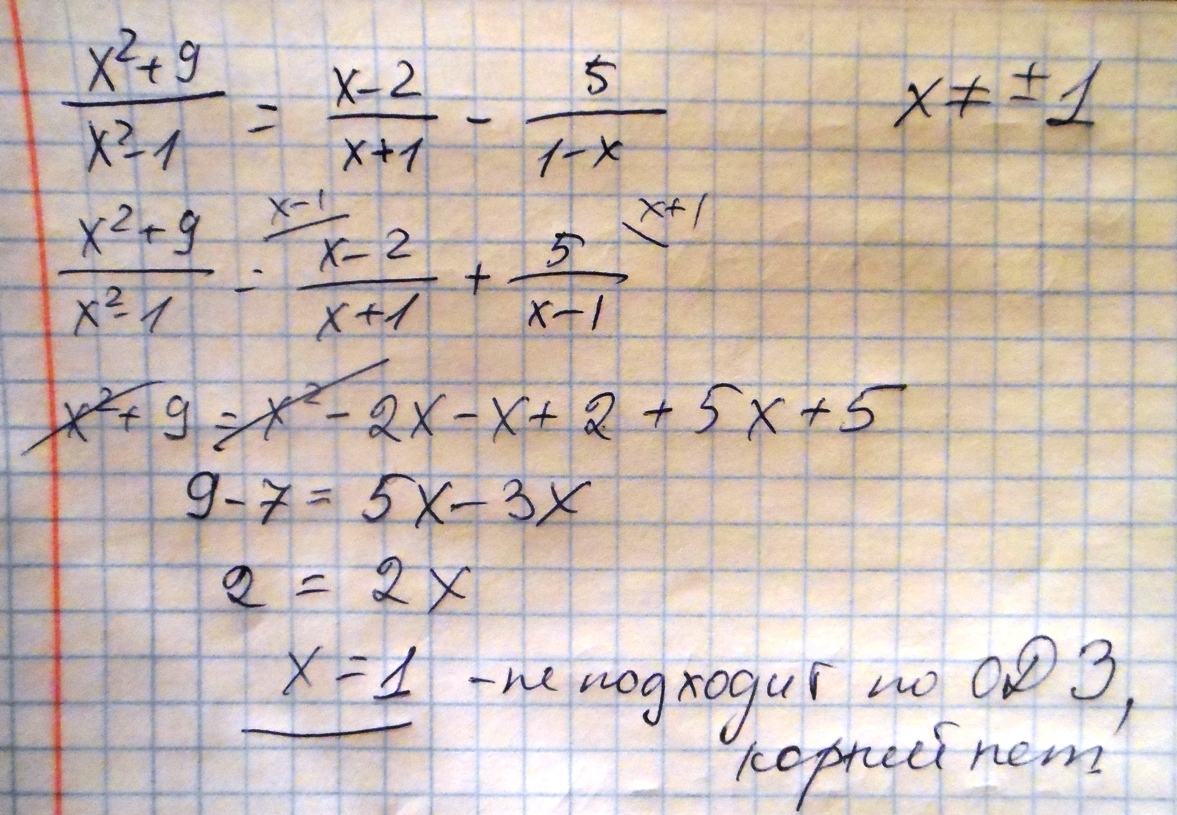 x²+9/x²-1 = x-2/x+1 - 5/1-x x ≠ ±1
x²+9/x²-1 = x-1 x-2/x+1 + 5/x-1 x+1
x²+9 = x²-2x-x+2+5x+5
9-7 = 5x-3x
2 = 2x
x=1 - не подходит по ОДЗ,
корней нет